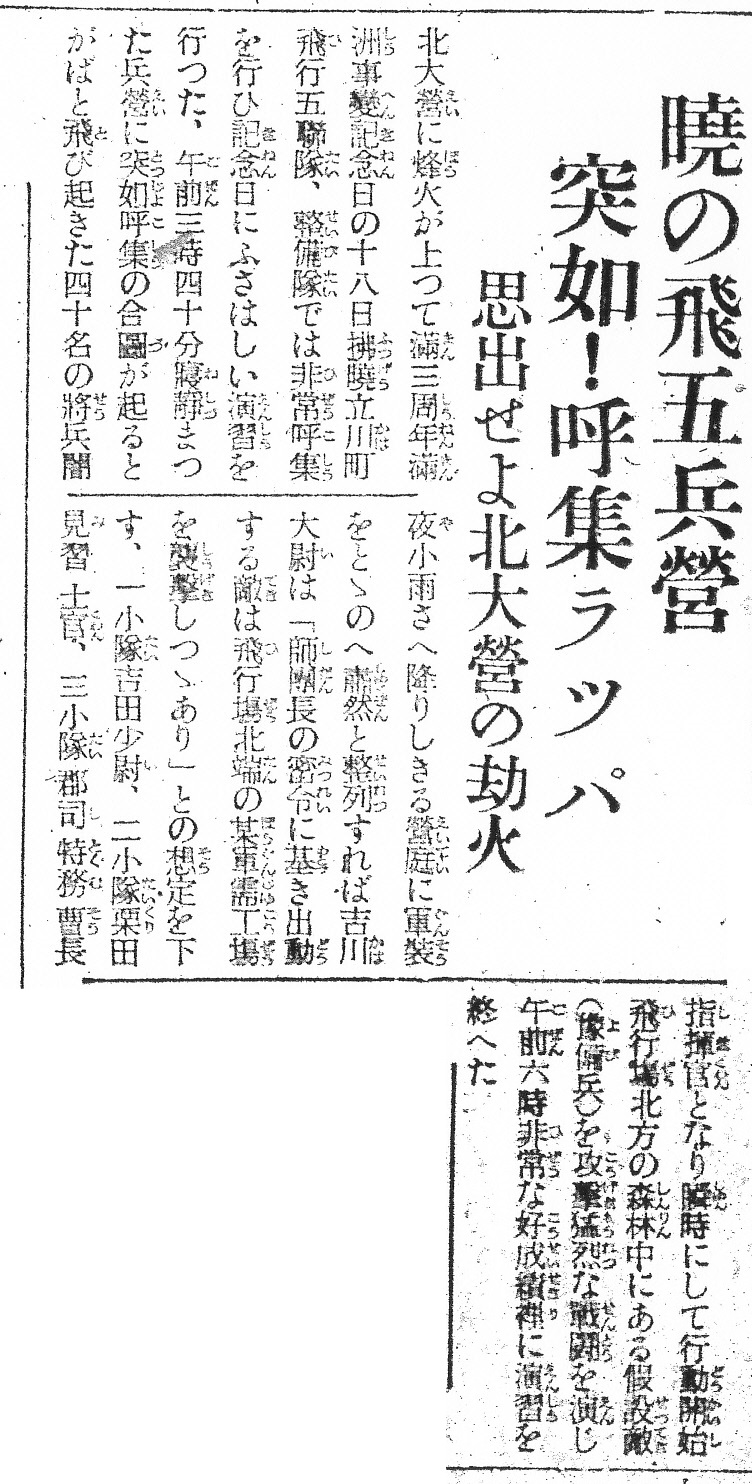 曉の飛五兵營
突如！呼集ラツパ
思出せよ北大營の劫火
北大營に烽火が上つて滿三周年滿
洲事變記念日の十八日拂曉立川町
飛行五聯隊、整備隊では非常呼集
を行ひ記念日にふさはしい演習を
行つた、午前三時四十分寢靜まつ
た兵營に突如呼集の合圖が起ると
がばと飛び起きた四十名の將兵闇
夜小雨さへ降りしきる營庭に軍裝
をとゝのへ肅然と整列すれば吉川
大尉は「師團長の密令に基き出動
する敵は飛行場北端の某軍需工場
を襲擊しつゝあり」との想定を下
す、一小隊吉田少尉、二小隊栗田
見習士官、三小隊郡司特務曹長
指揮官となり瞬時にして行動開始
飛行場北方の森林中にある假設敵
（豫備兵）を攻擊猛烈な戰鬪を演じ
午前六時非常な好成績裡に演習を
終へた